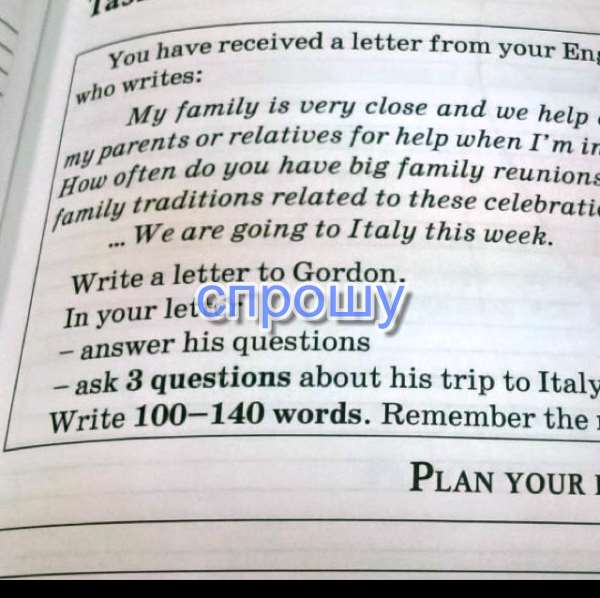 You have received a letter from your Eng
who writes:
My family is very close and we help
my parents or relatives for help when I'm in
How often do you have big family reunions
family traditions related to these celebrati
... We are going to Italy this week.
Write a letter to Gordon.
In your let
спрошу
– answer his questions
– ask 3 questions about his trip to Italy
Write 100–140 words. Remember the
PLAN YOUR